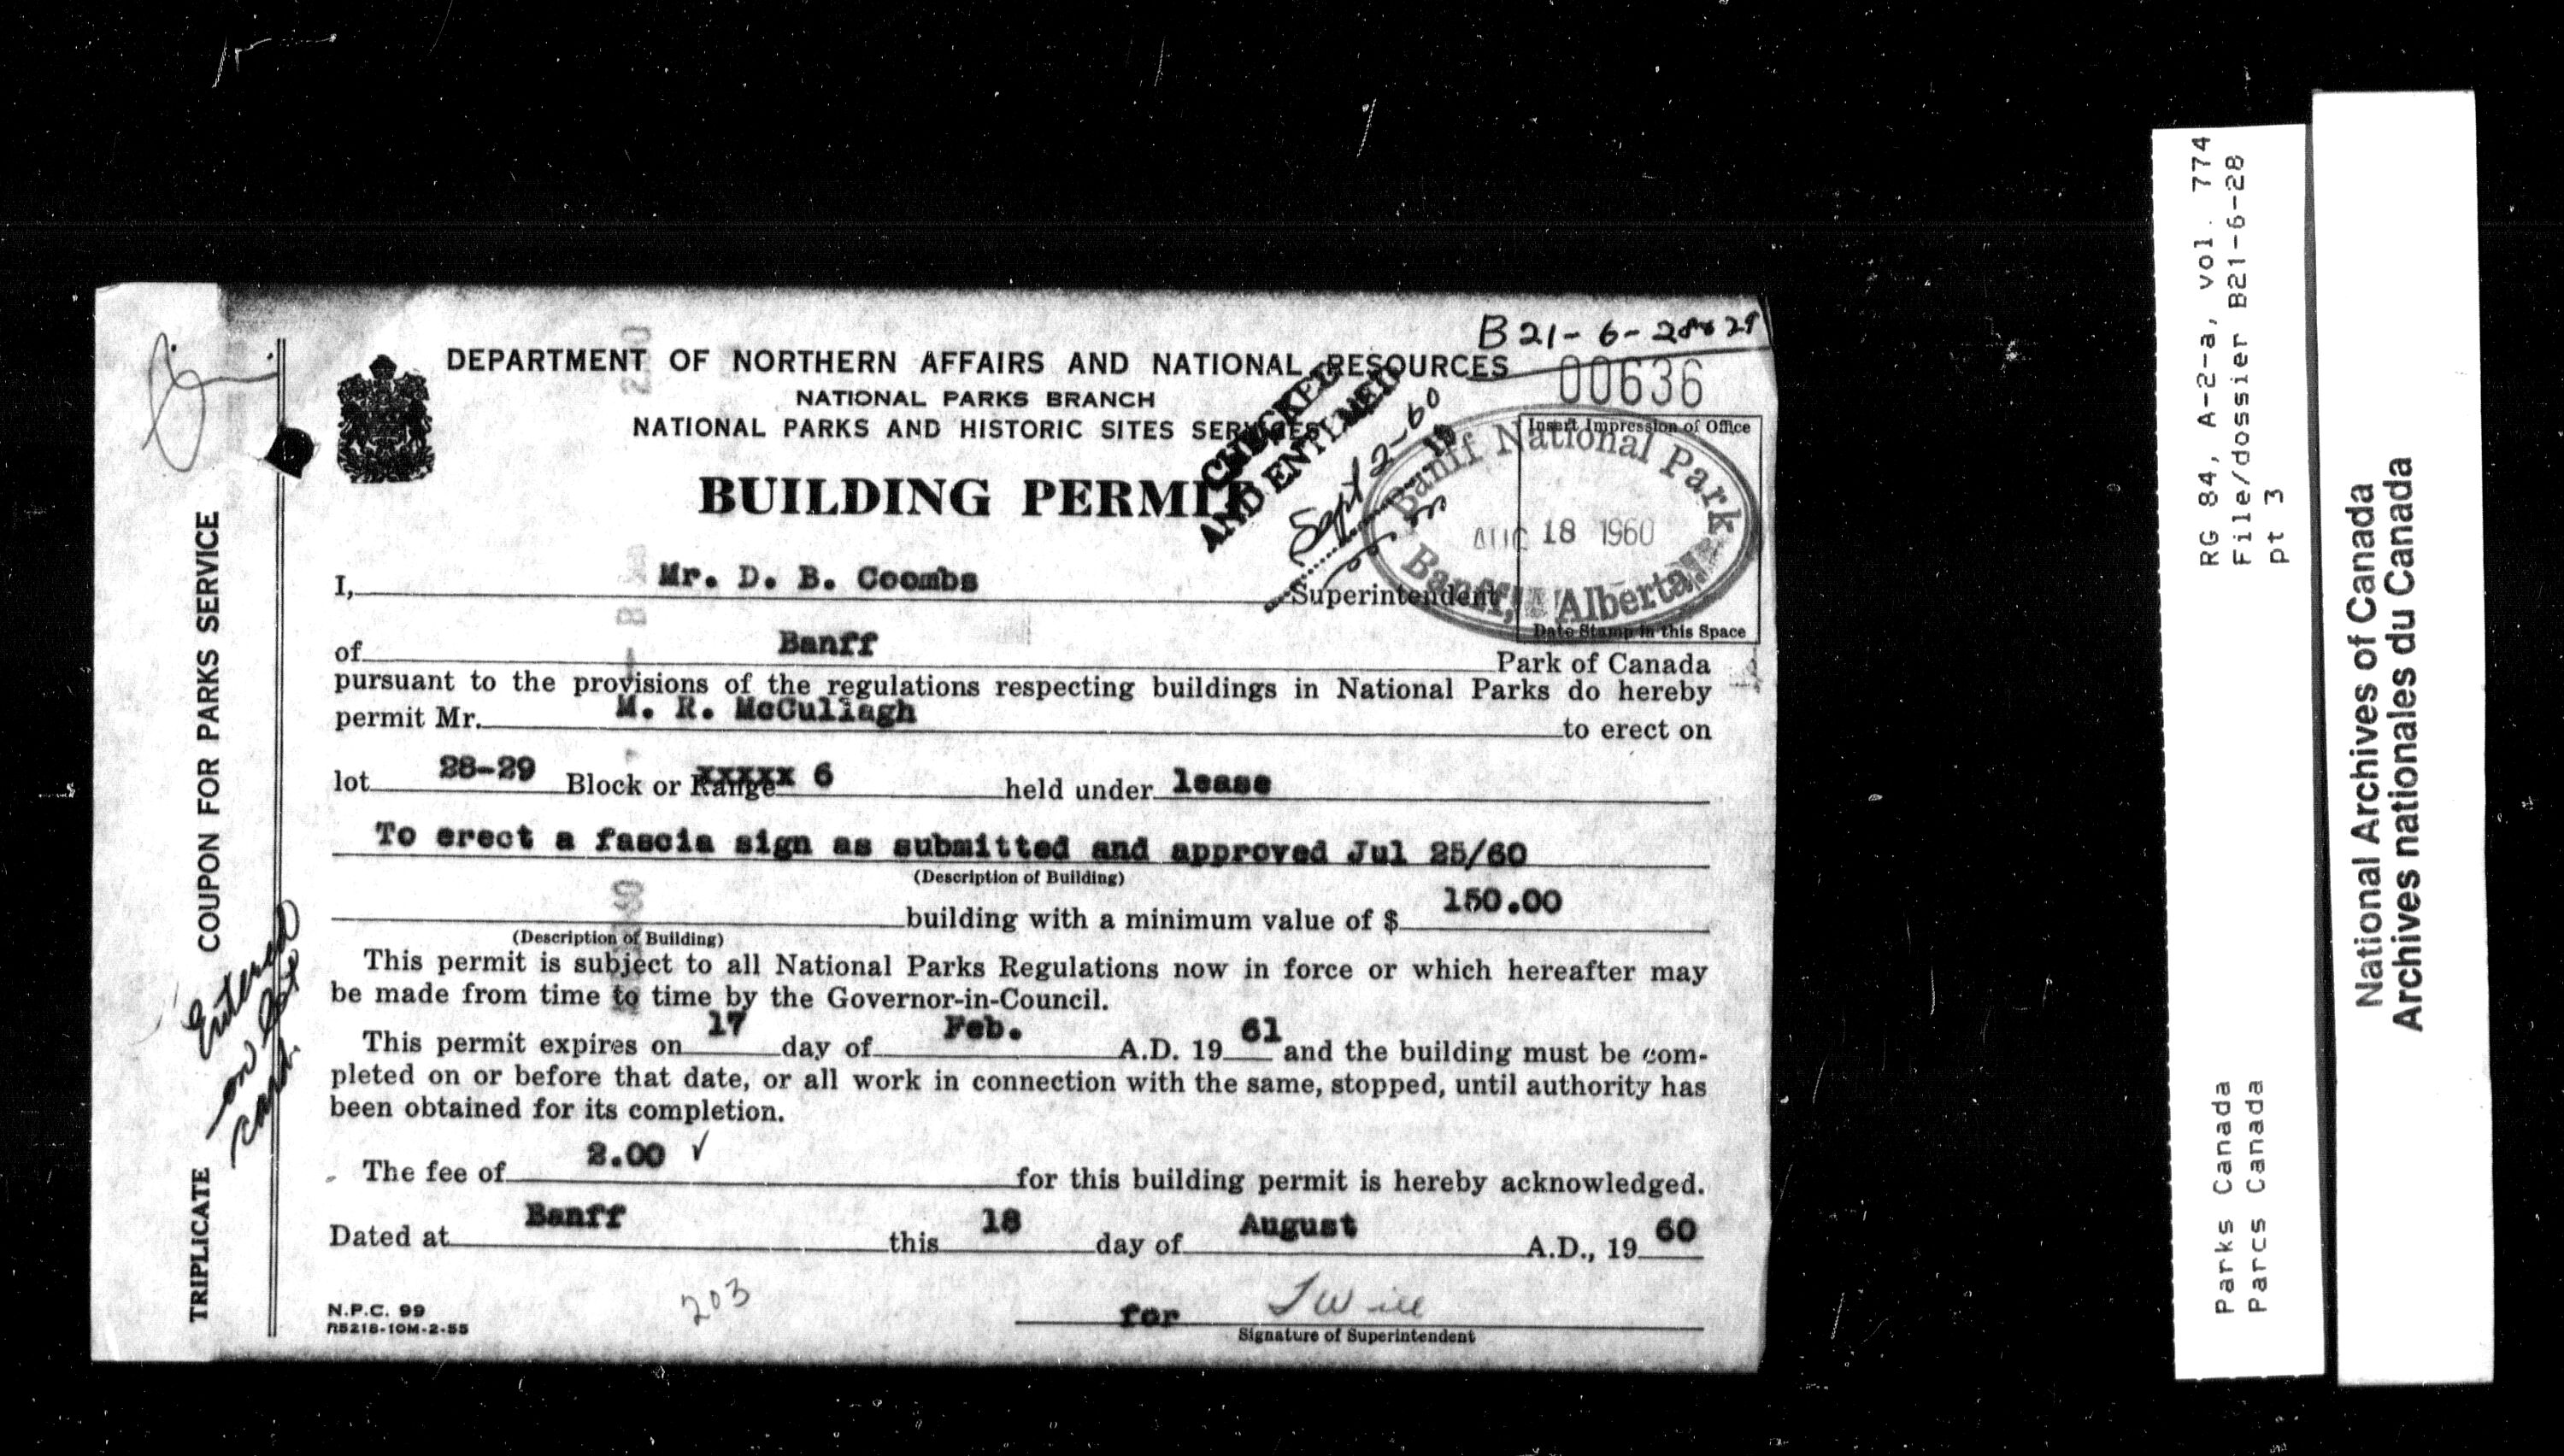 B 21-6-28&29
DEPARTMENT OF NORTHERN AFFAIRS AND NATIONAL RESOURCES
00636
NATIONAL PARKS BRANCH
NATIONAL PARKS AND HISTORIC SITES SERVICES
CHECKED
AND ENTERED
Sept 2-60
BUILDING PERMIT
Insert Impression of Office
Banff National Park
AUG 18 1960
Banff, Alberta
Date Stamp in this Space
I, Mr. D. B. Coombs Superintendent
of Banff Park of Canada
pursuant to the provisions of the regulations respecting buildings in National Parks do hereby
permit Mr. M. R. McCullagh to erect on
lot 28-29 Block or Range xxxxx 6 held under lease
To erect a fascia sign as submitted and approved Jul 25/60
(Description of Building)
building with a minimum value of $ 150.00
(Description of Building)
This permit is subject to all National Parks Regulations now in force or which hereafter may
be made from time to time by the Governor-in-Council.
This permit expires on 17 day of Feb. A.D. 19 61 and the building must be com-
pleted on or before that date, or all work in connection with the same, stopped, until authority has
been obtained for its completion.
The fee of 2.00 ✓ for this building permit is hereby acknowledged.
Dated at Banff this 18 day of August A.D., 19 60
N.P.C. 99
R5218-10M-2-55
203
for
Signature of Superintendent
TRIPLICATE COUPON FOR PARKS SERVICE
Entered
on lot
card.
RG 84, A-2-a, vol. 774
File/dossier B21-6-28
pt 3
Parks Canada
Parcs Canada
National Archives of Canada
Archives nationales du Canada